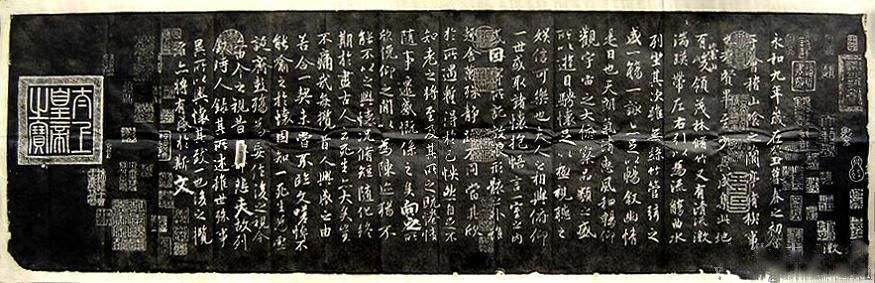 永和九年歲在癸丑暮春之初會
于會稽山陰之蘭亭脩稧事
也羣賢畢至少長咸集此地
有崇山峻領茂林脩竹又有清流激
湍暎帶左右引以為流觴曲水
列坐其次雖無絲竹管弦之
盛一觴一詠亦足以暢敘幽情
是日也天朗氣清惠風和暢仰
觀宇宙之大俯察品類之盛
所以遊目騁懷足以極視聽之
娛信可樂也夫人之相與俯仰
一世或取諸懷抱悟言一室之內
或因寄所託放浪形骸之外雖
趣舍萬殊靜躁不同當其欣
於所遇蹔得於己怏然自足不
知老之將至及其所之既惓情
隨事遷感慨係之矣向之所
欣俛仰之閒以為陳迹猶不
能不以之興懷況脩短隨化終
期於盡古人云死生亦大矣豈
不痛哉每攬昔人興感之由
若合一契未嘗不臨文嗟悼不
能喻之於懷固知一死生為虛
誕齊彭殤為妄作後之視今
亦由今之視昔悲夫故列
敘時人錄其所述雖世殊事
異所以興懷其致一也後之攬
者亦將有感於斯文
太上皇帝之寶